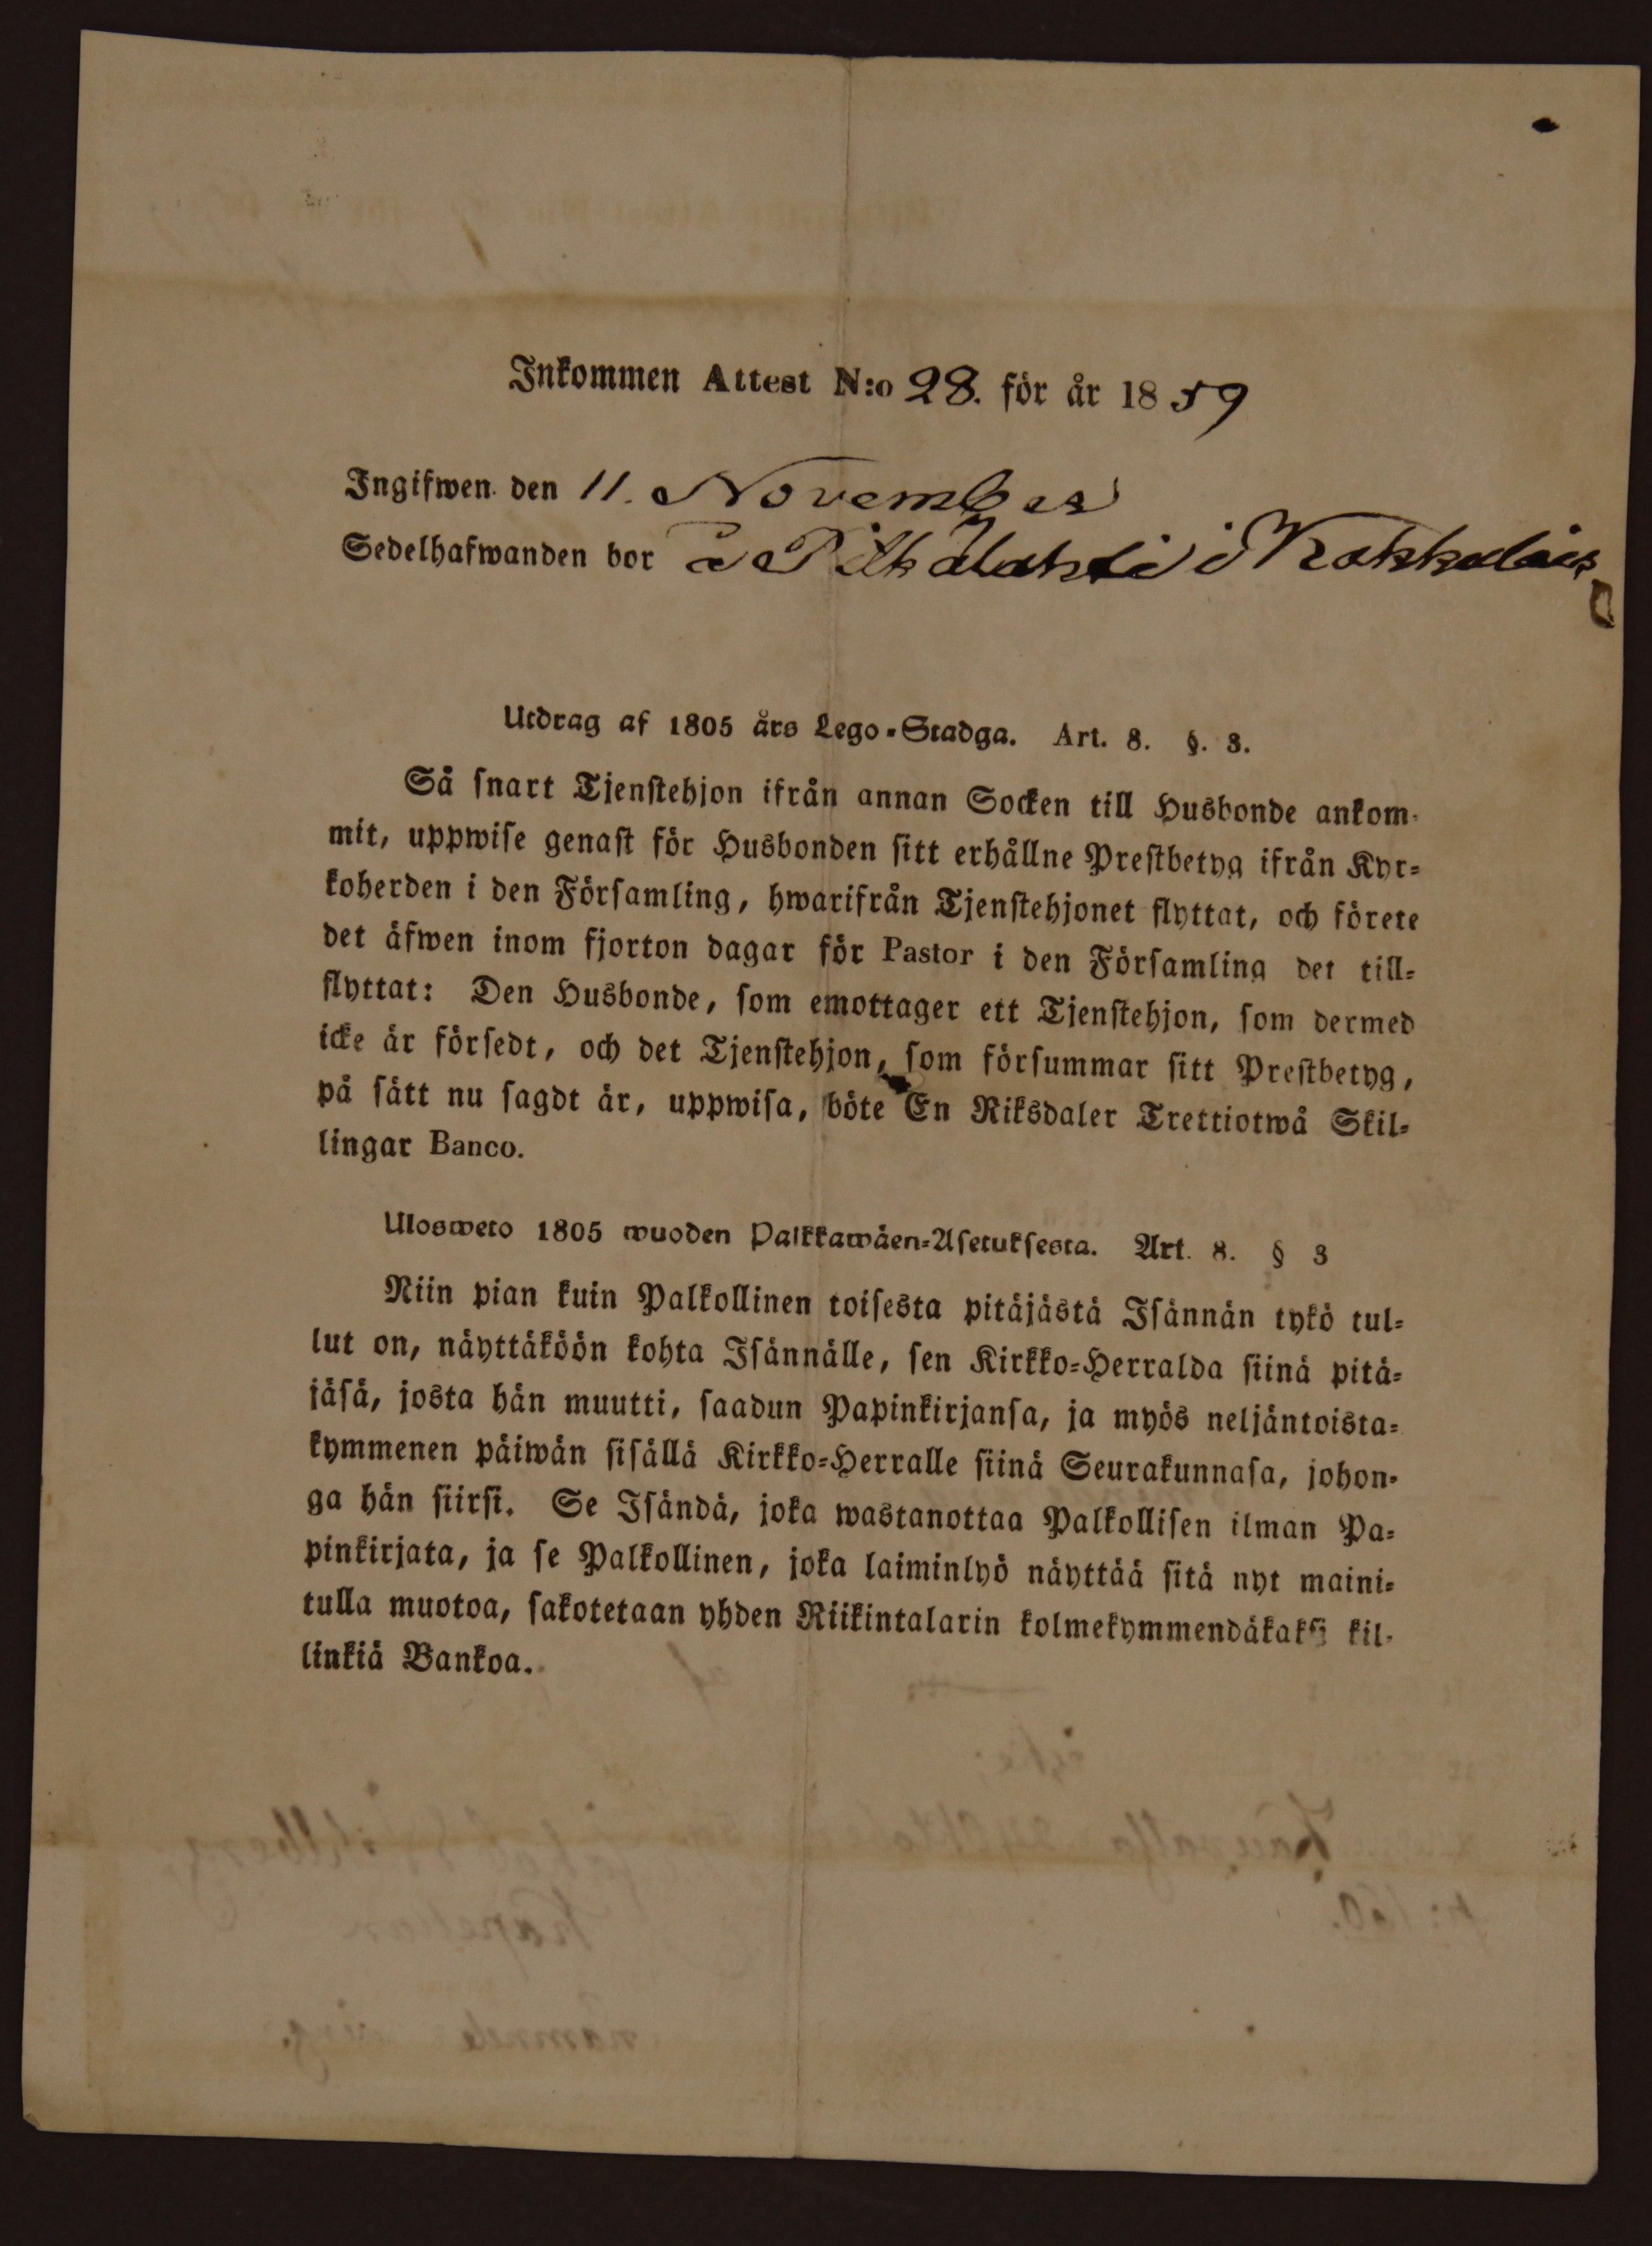 Inkommen Attest N:o 28. för år 1859
Ingifwen den 11. November
Sedelhafwanden bor å Pitkälahti i
Utdrag af 1805 års Lego-Stadga. Art. 8. §. 3.
Så snart Tjenstehjon ifrån annan Socken till Husbonde ankom-
mit, uppwise genast för Husbonden sitt erhållne Prestbetyg ifrån Kyr-
koherden i den Församling, hwarifrån Tjenstehjonet flyttat, och förete
det äfwen inom fjorton dagar för Pastor i den Församling det till-
flyttat: Den Husbonde, som emottager ett Tjenstehjon, som dermed
icke är försedt, och det Tjenstehjon, som försummar sitt Prestbetyg,
på sätt nu sagdt är, uppwisa, böte En Riksdaler Trettiotwå Skil-
lingar Banco.
Ulosweto 1805 wuoden Palkkawäen-Asetuksesta. Art. 8. § 3
Niin pian kuin Palkollinen toisesta pitäjästä Isännän tykö tul-
lut on, näyttäköön kohta Isännälle, sen Kirkko-Herralda siinä pitä-
jäsä, josta hän muutti, saadun Papinkirjansa, ja myös neljäntoista-
kymmenen päiwän sisällä Kirkko-Herralle siinä Seurakunnasa, johon-
ga hän siirsi. Se Isändä, joka wastanottaa Palkollisen ilman Pa-
pinkirjata, ja se Palkollinen, joka laiminlyö näyttää sitä nyt maini-
tulla muotoa, sakotetaan yhden Riikintalarin kolmekymmendäkaksi kil-
linkiä Bankoa.